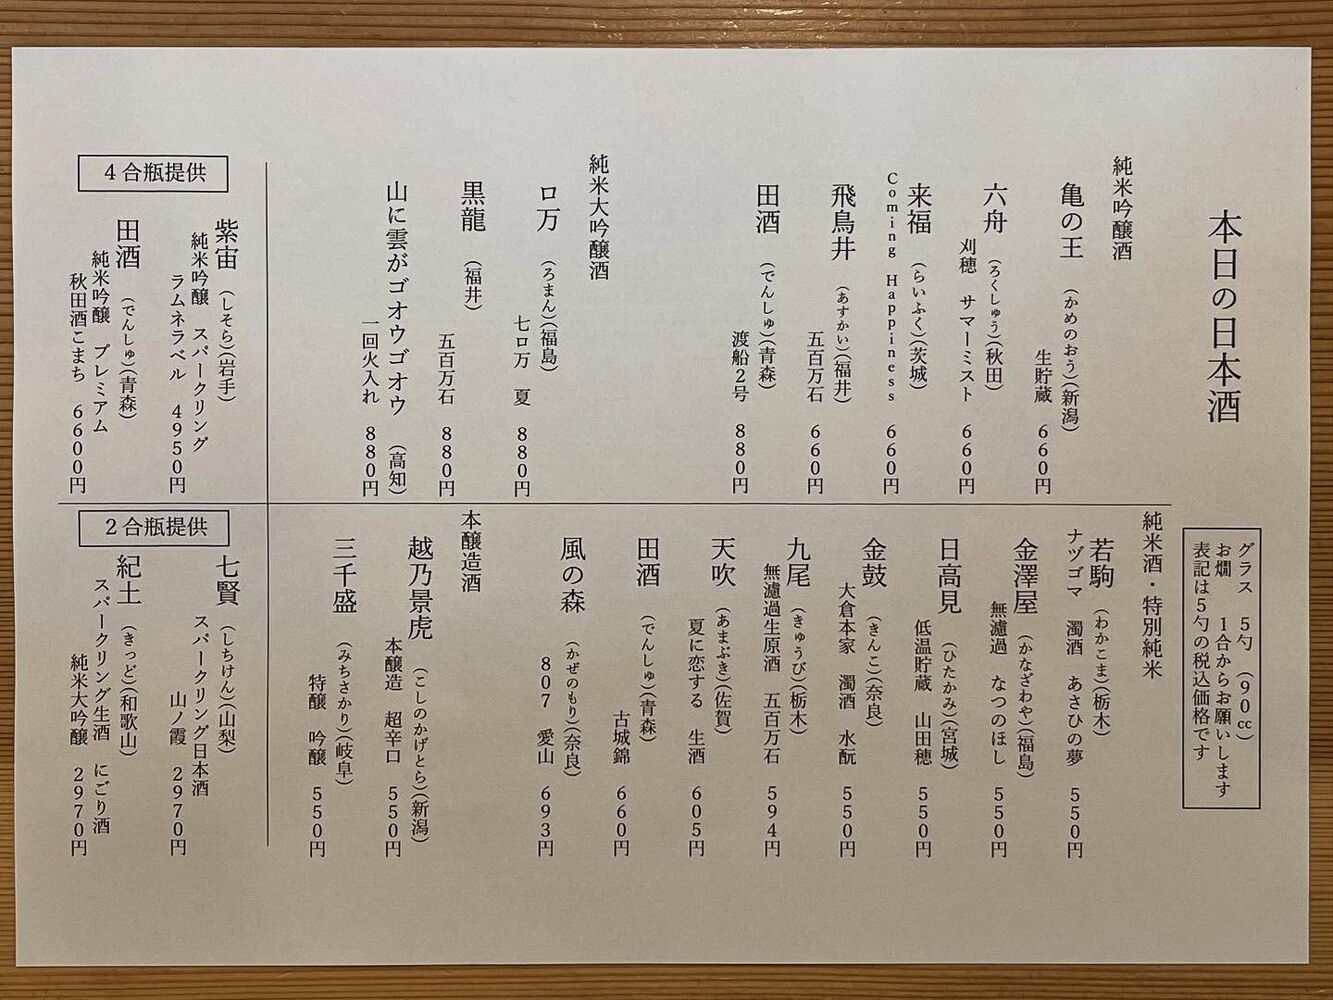 本日の日本酒
グラス　５勺　（９０㏄）
お燗　１合からお願いします
表記は５勺の税込価格です
純米吟醸酒
亀の王　（かめのおう）（新潟）
生貯蔵　６６０円
六舟　（ろくしゅう）（秋田）
刈穂　サマーミスト　６６０円
来福　（らいふく）（茨城）
Coming Happiness　６６０円
飛鳥井　（あすかい）（福井）
五百万石　６６０円
田酒　（でんしゅ）（青森）
渡船２号　８８０円
純米大吟醸酒
ロ万　（ろまん）（福島）
七ロ万　夏　８８０円
黒龍　（福井）
五百万石　８８０円
山に雲がゴオウゴオウ　（高知）
一回火入れ　８８０円
純米酒・特別純米
若駒　（わかこま）（栃木）
ナヅゴマ　濁酒　あさひの夢　５５０円
金澤屋　（かなざわや）（福島）
無濾過　なつのほし　５５０円
日高見　（ひたかみ）（宮城）
低温貯蔵　山田穂　５５０円
金鼓　（きんこ）（奈良）
大倉本家　濁酒　水酛　５５０円
九尾　（きゅうび）（栃木）
無濾過生原酒　五百万石　５９４円
天吹　（あまぶき）（佐賀）
夏に恋する　生酒　６０５円
田酒　（でんしゅ）（青森）
古城錦　６６０円
風の森　（かぜのもり）（奈良）
８０７　愛山　６９３円
本醸造酒
越乃景虎　（こしのかげとら）（新潟）
本醸造　超辛口　５５０円
三千盛　（みちさかり）（岐阜）
特醸　吟醸　５５０円
４合瓶提供
紫宙　（しそら）（岩手）
純米吟醸　スパークリング
ラムネラベル　４９５０円
田酒　（でんしゅ）（青森）
純米吟醸　プレミアム
秋田酒こまち　６６００円
２合瓶提供
七賢　（しちけん）（山梨）
スパークリング日本酒
山ノ霞　２９７０円
紀土　（きっど）（和歌山）
スパークリング生酒　にごり酒
純米大吟醸　２９７０円